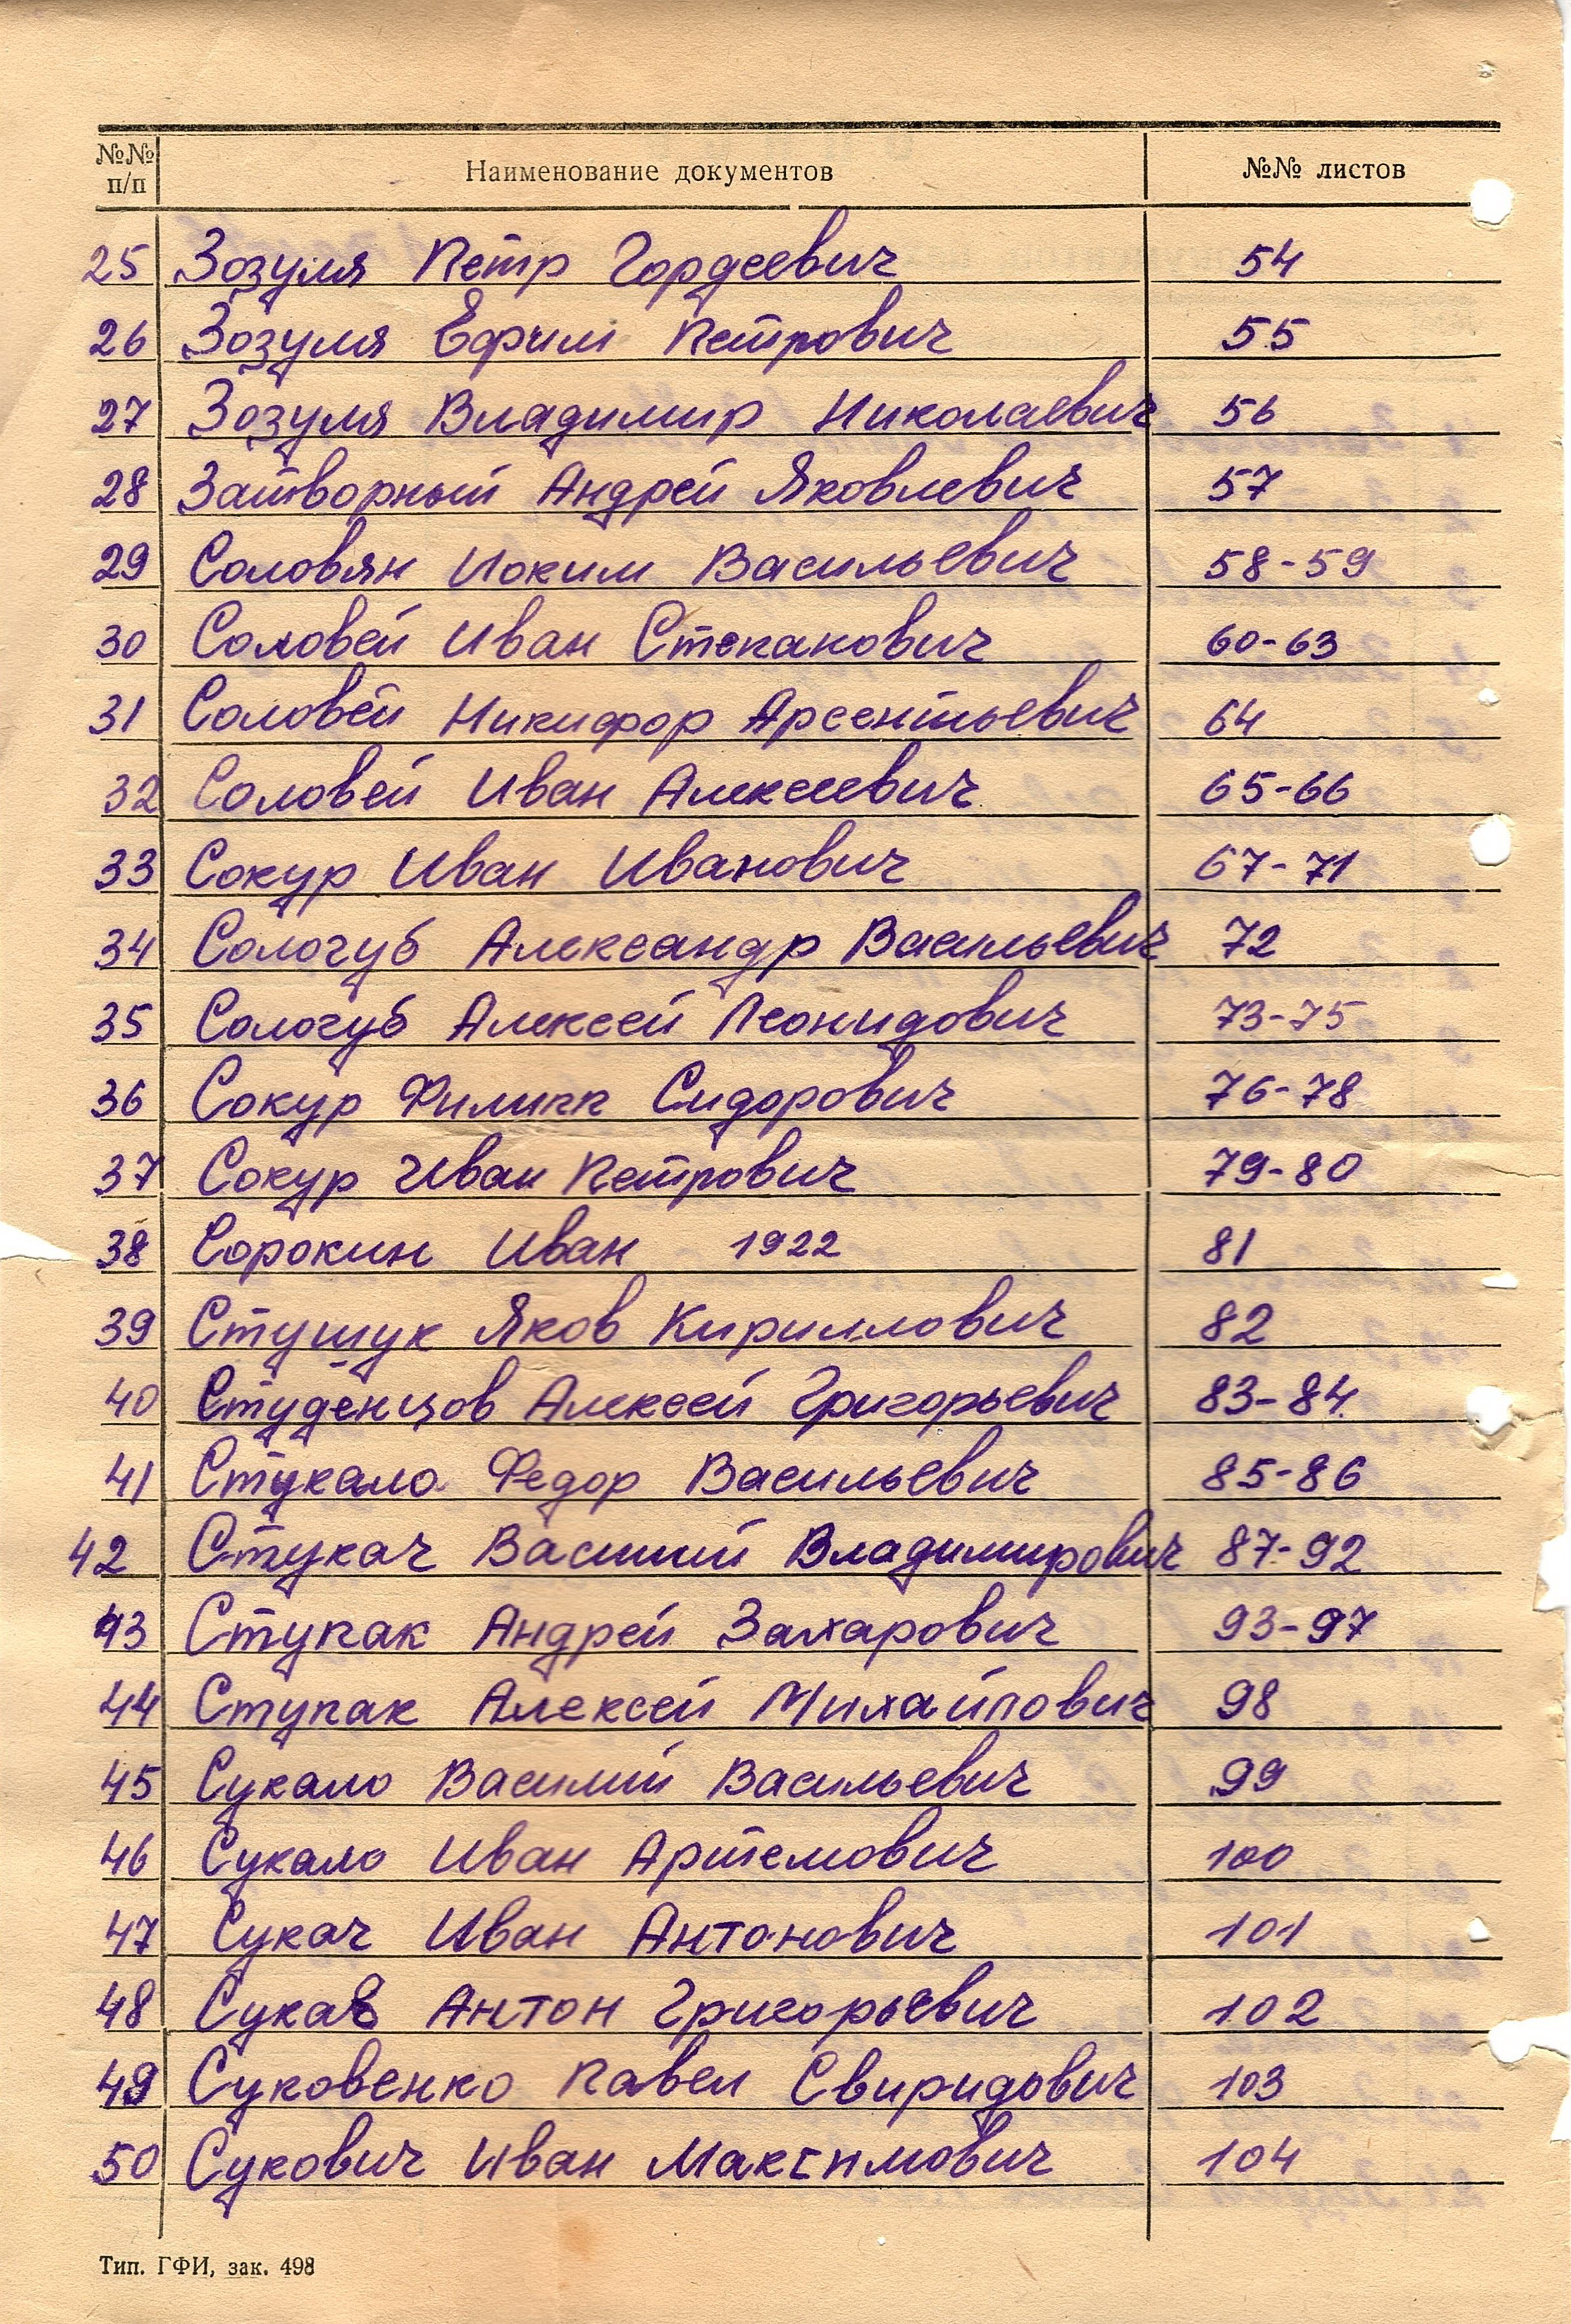 №№ п/п Наименование документов №№ листов
25 Зозуля Петр Гордеевич 54
26 Зозуля Ефим Петрович 55
27 Зозуля Владимир Николаевич 56
28 Затворный Андрей Яковлевич 57
29 Соловян Иоким Васильевич 58-59
30 Соловей Иван Степанович 60-63
31 Соловей Никифор Арсентьевич 64
32 Соловей Иван Алексеевич 65-66
33 Сокур Иван Иванович 67-71
34 Сологуб Александр Васильевич 72
35 Сологуб Алексей Леонидович 73-75
36 Сокур Филипп Сидорович 76-78
37 Сокур Иван Петрович 79-80
38 Сорокин Иван 1922 81
39 Стущук Яков Кириллович 82
40 Студенцов Алексей Григорьевич 83-84
41 Стукало Федор Васильевич 85-86
42 Стукач Василий Владимирович 87-92
43 Ступак Андрей Захарович 93-97
44 Ступак Алексей Михайлович 98
45 Сукало Василий Васильевич 99
46 Сукало Иван Артемович 100
47 Сукач Иван Антонович 101
48 Сукав Антон Григорьевич 102
49 Суковенко Павел Свиридович 103
50 Сукович Иван Максимович 104
Тип. ГФИ, зак. 498